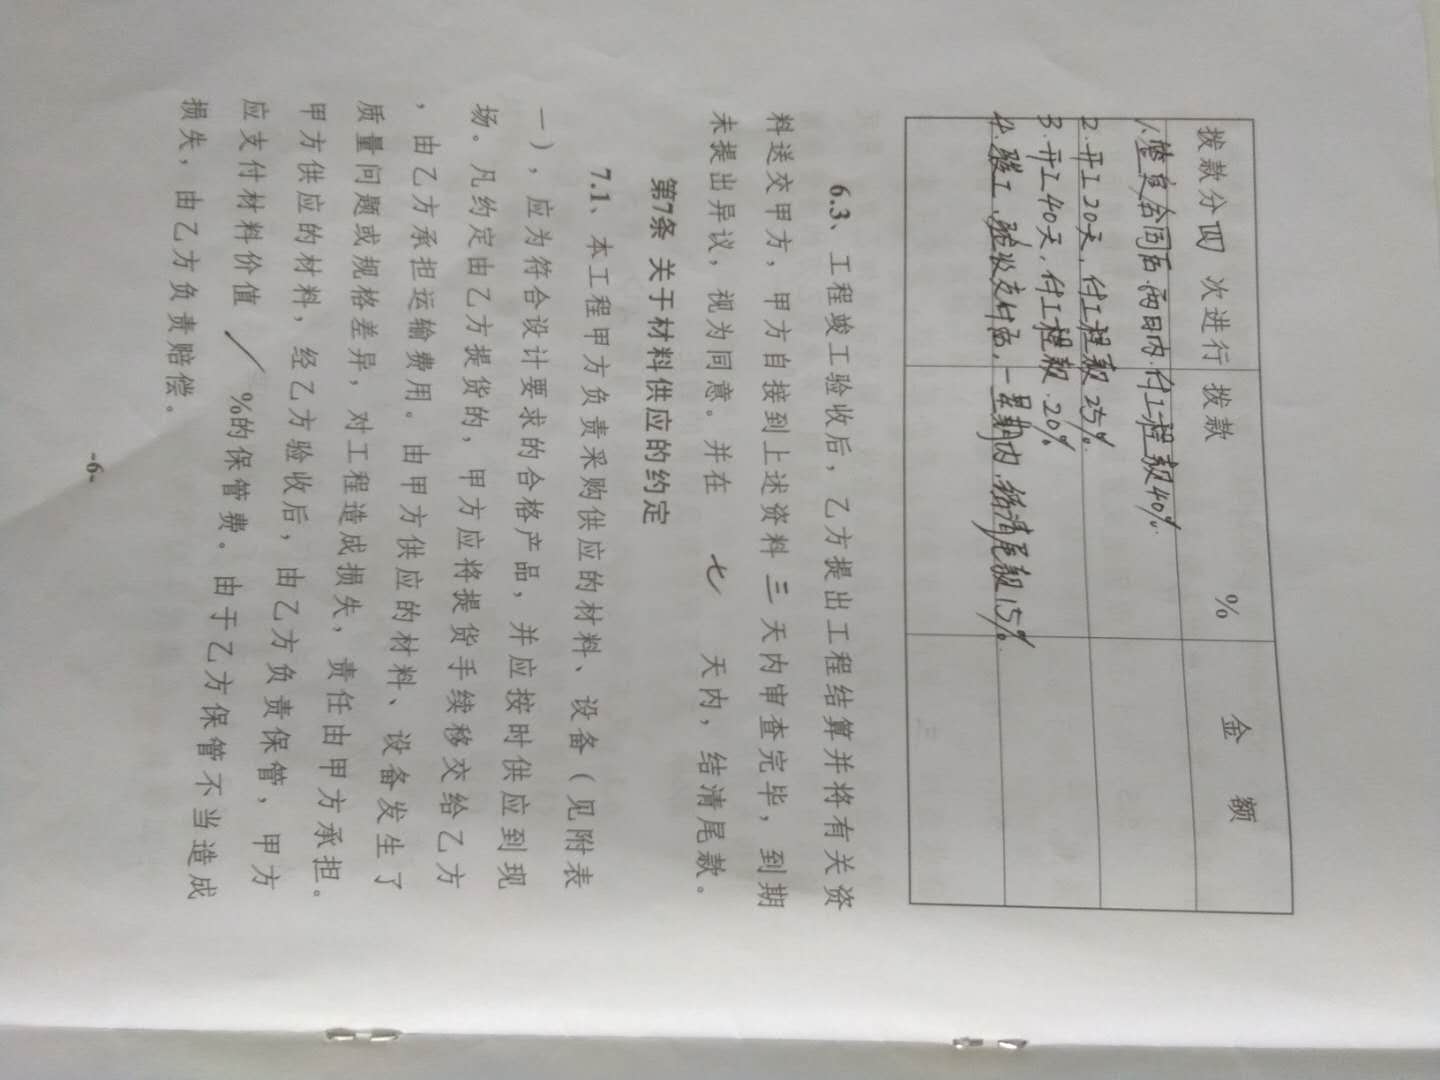 拨款分四 次进行 拨款 % 金 额
1.签定合同后,两日内.付工程款40%.
2.开工20天,付工程款25%.
3.开工40天,付工程款.20%
4.竣工.验收交付后,一星期内.结清尾款15%.
6.3、工程竣工验收后，乙方提出工程结算并将有关资
料送交甲方，甲方自接到上述资料 三 天内审查完毕，到期
未提出异议，视为同意。并在 七 天内，结清尾款。
第7条 关于材料供应的约定
7.1、本工程甲方负责采购供应的材料、设备（见附表
一），应为符合设计要求的合格产品，并应按时供应到现
场。凡约定由乙方提货的，甲方应将提货手续移交给乙方
，由乙方承担运输费用。由甲方供应的材料、设备发生了
质量问题或规格差异，对工程造成损失，责任由甲方承担。
甲方供应的材料，经乙方验收后，由乙方负责保管，甲方
应支付材料价值 / %的保管费。由于乙方保管不当造成
损失，由乙方负责赔偿。
-6-